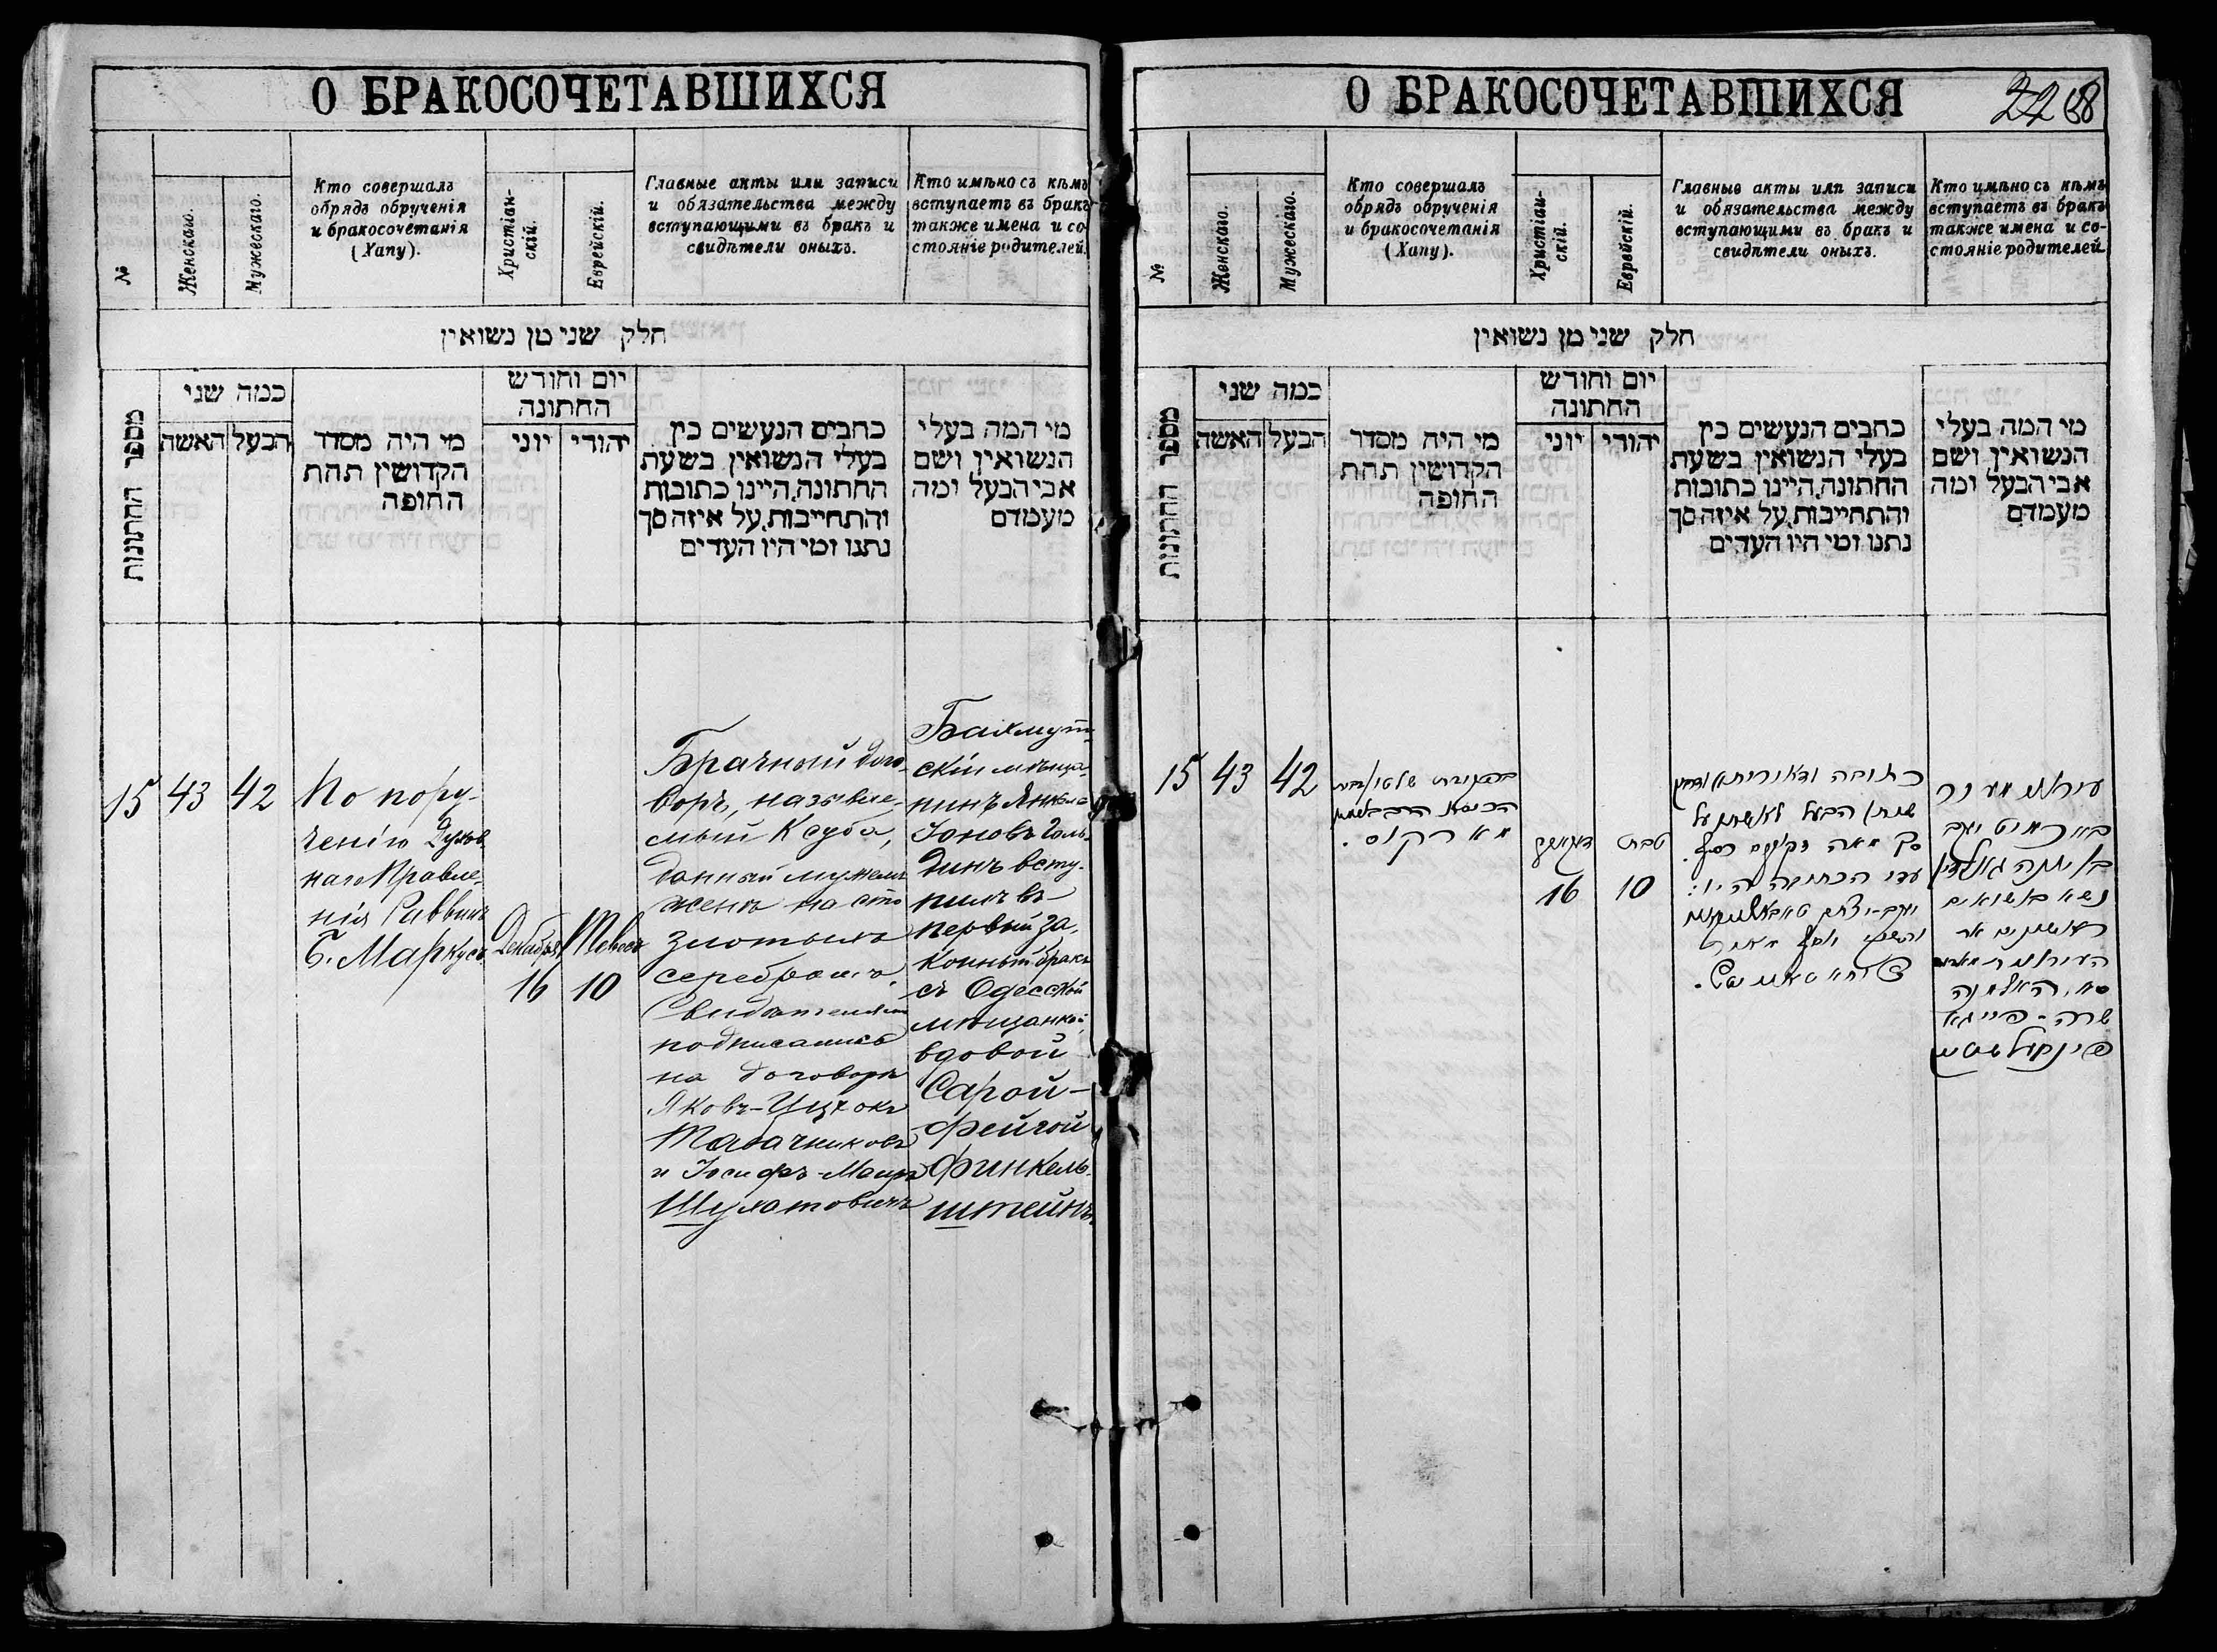 О БРАКОСОЧЕТАВШИХСЯ
№
Женскаго.
Мужескаго.
Кто совершалъ
обрядъ обрученія
и бракосочетанія
(Хапу).
Христіан-
скій.
Еврейскій.
Главные акты или записи
и обязательства между
вступающими въ бракъ и
свидѣтели оныхъ.
Кто имѣно съ кѣмъ
вступаетъ въ бракъ
также имена и со-
стояніе родителей.
חלק שני מן נשואין
מספר החתונות
כמה שני
האשה
הבעל
מי היה מסדר
הקדושין תחת
החופה
יום וחודש
החתונה
יוני
יהודי
כתבים הנעשים בין
בעלי הנשואין בשעת
החתונה, היינו כתובות
והתחייבות, על איזה סך
נתנו ומי היו העדים
מי המה בעלי
הנשואין ושם
אבי הבעל ומה
מעמדם
15
43
42
По пору-
ченію Духов.
наго Правле-
нія Раввинъ
Б. Маркусъ
Декабря
16
Тевеса
10
Брачный дого-
воръ, называе-
мый Ксуба,
данный мужемъ
женѣ на сто
злотыхъ
серебромъ.
Свидѣтелями
подписались
на договорѣ
Яковъ-Ицхокъ
Табачниковъ
и Іосифъ-Меиръ
Шухатовичъ
Бахмут-
скій мѣща-
нинъ Янкель
Іоновъ Голь-
динъ всту-
пилъ въ
первый за-
конный бракъ
съ Одесской
мѣщанкой,
вдовой
Сарой-
Фейгой
Финкель-
штейнъ.
О БРАКОСОЧЕТАВШИХСЯ
№
Женскаго.
Мужескаго.
Кто совершалъ
обрядъ обрученія
и бракосочетанія
(Хапу).
Христіан-
скій.
Еврейскій.
Главные акты или записи
и обязательства между
вступающими въ бракъ и
свидѣтели оныхъ.
Кто имѣно съ кѣмъ
вступаетъ въ бракъ
также имена и со-
стояніе родителей
חלק שני מן נשואין
מספר החתונות
כמה שני
האשה
הבעל
מי היה מסדר
הקדושין תחת
החופה
יום וחודש
החתונה
יוני
יהודי
כתבים הנעשים בין
בעלי הנשואין בשעת
החתונה, היינו כתובות
והתחייבות, על איזה סך
נתנו ומי היו העדים
מי המה בעלי
הנשואין ושם
אבי הבעל ומה
מעמדם
15
43
42
מארקוס.
16
טבת
10
כתובה דאוריתא
שנתן הבעל לאשתו על
סך מאה זקוקים כסף.
עדי הכתובה היו:
יעקב-יצחק טאבאטשניקאוו
עיראני מעיר
באכמוט יעקב
בן יונה גאלדין
נשא בנשואים
ראשונים את
העיראנית מאדעסא
האלמנה
שרה-פייגא
פינקעלשטיין